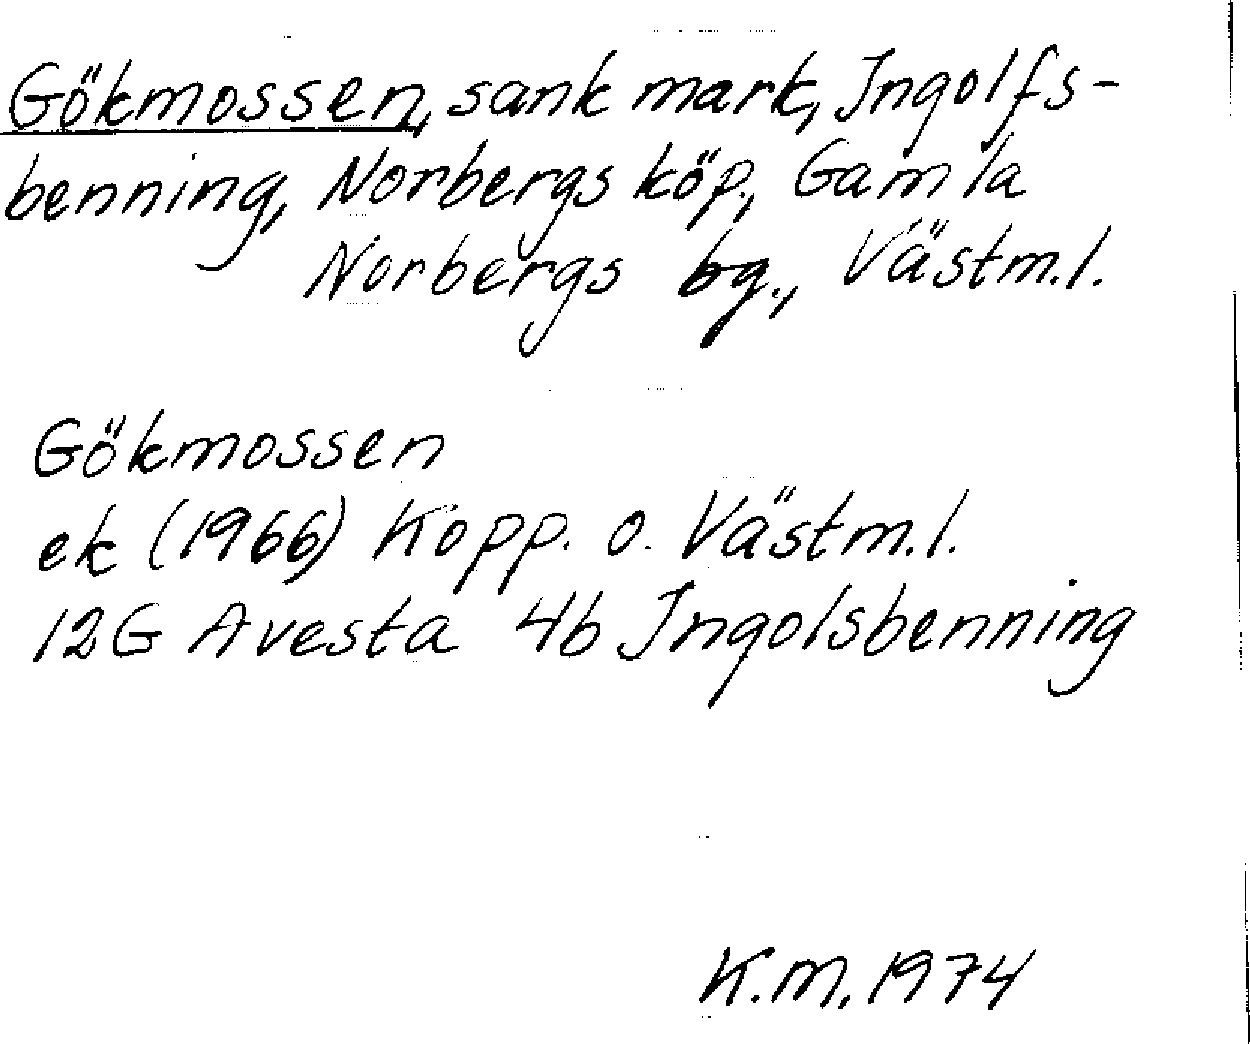 Gökmossen, sank mark, Ingolfs-
benning, Norbergs köp., Gamla
Norbergs bg., Västm.l.
Gökmossen
ek (1966) Kopp. o. Västm.l.
12G Avesta 4b Ingolsbenning
K.M. 1974